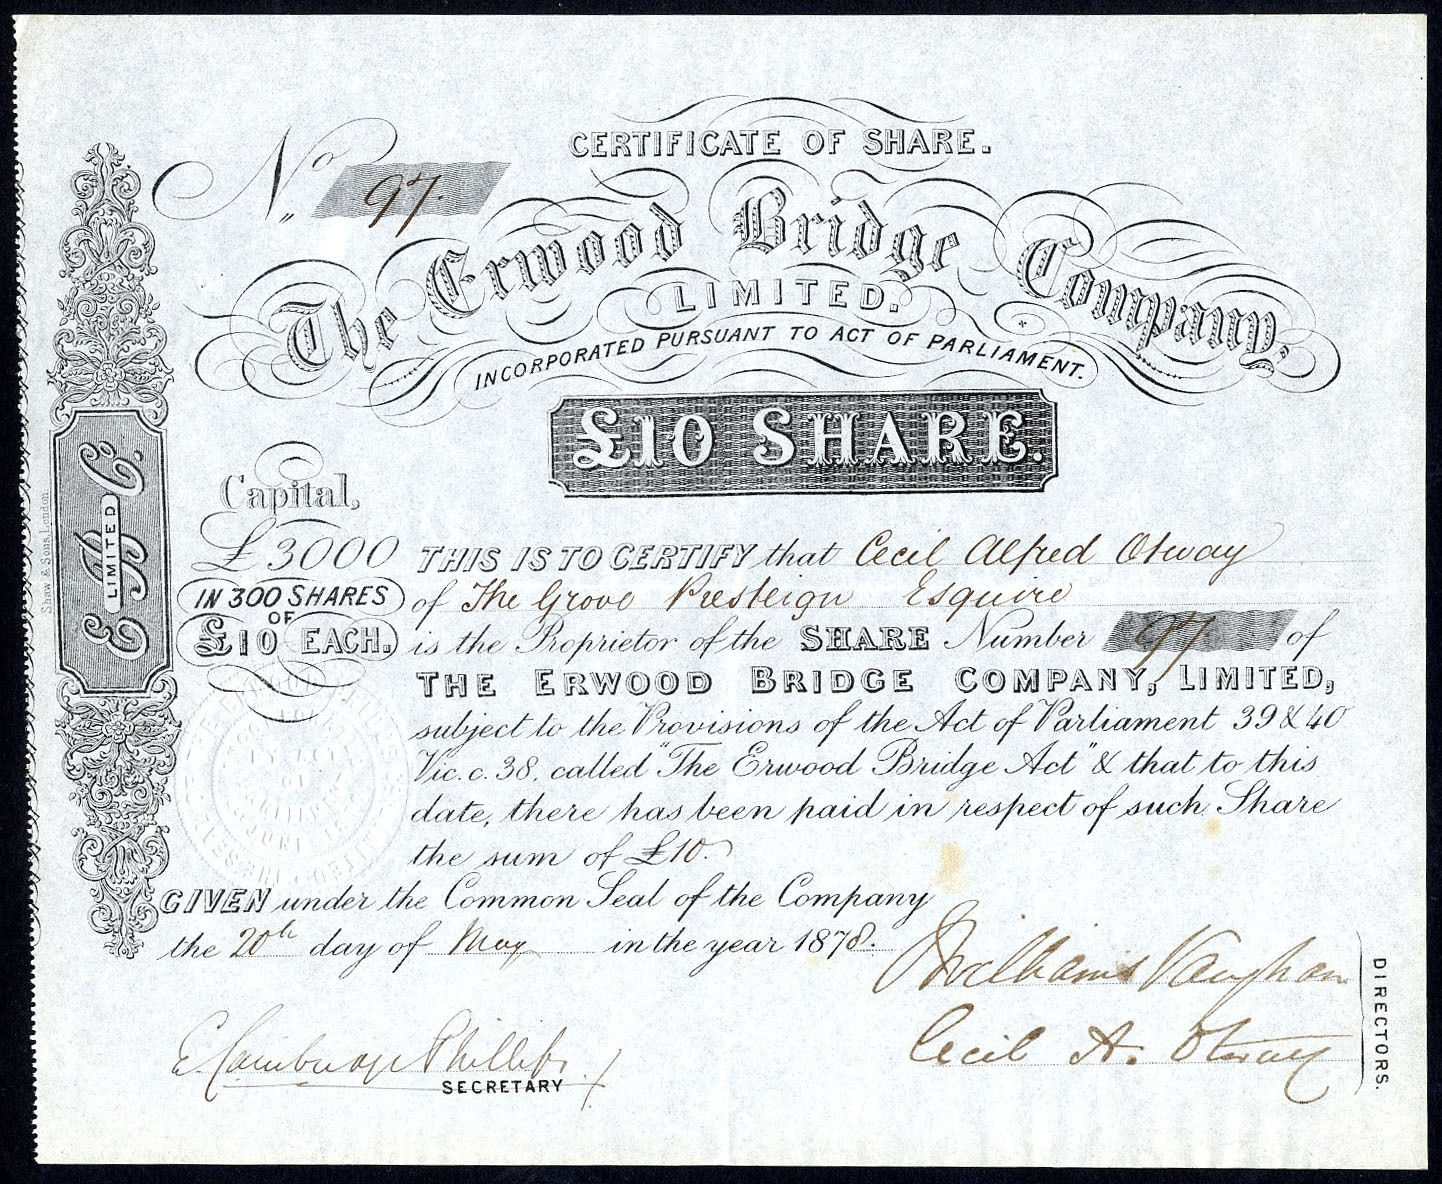 CERTIFICATE OF SHARE.
No. 97.
The Erwood Bridge Company,
LIMITED.
INCORPORATED PURSUANT TO ACT OF PARLIAMENT.
£10 SHARE.
E B Co.
LIMITED
Shaw & Sons, London.
Capital,
£3000
IN 300 SHARES
OF
£10 EACH.
THIS IS TO CERTIFY that Cecil Alfred Otway
of The Grove Presteign Esquire
is the Proprietor of the SHARE Number 97 of
THE ERWOOD BRIDGE COMPANY, LIMITED,
subject to the Provisions of the Act of Parliament 39 & 40
Vic. c. 38. called "The Erwood Bridge Act" & that to this
date, there has been paid in respect of such Share
the sum of £10.
GIVEN under the Common Seal of the Company
the 20th day of May in the year 1878.
Williams Vaughan
Cecil A. Otway
DIRECTORS.
Phillips
SECRETARY